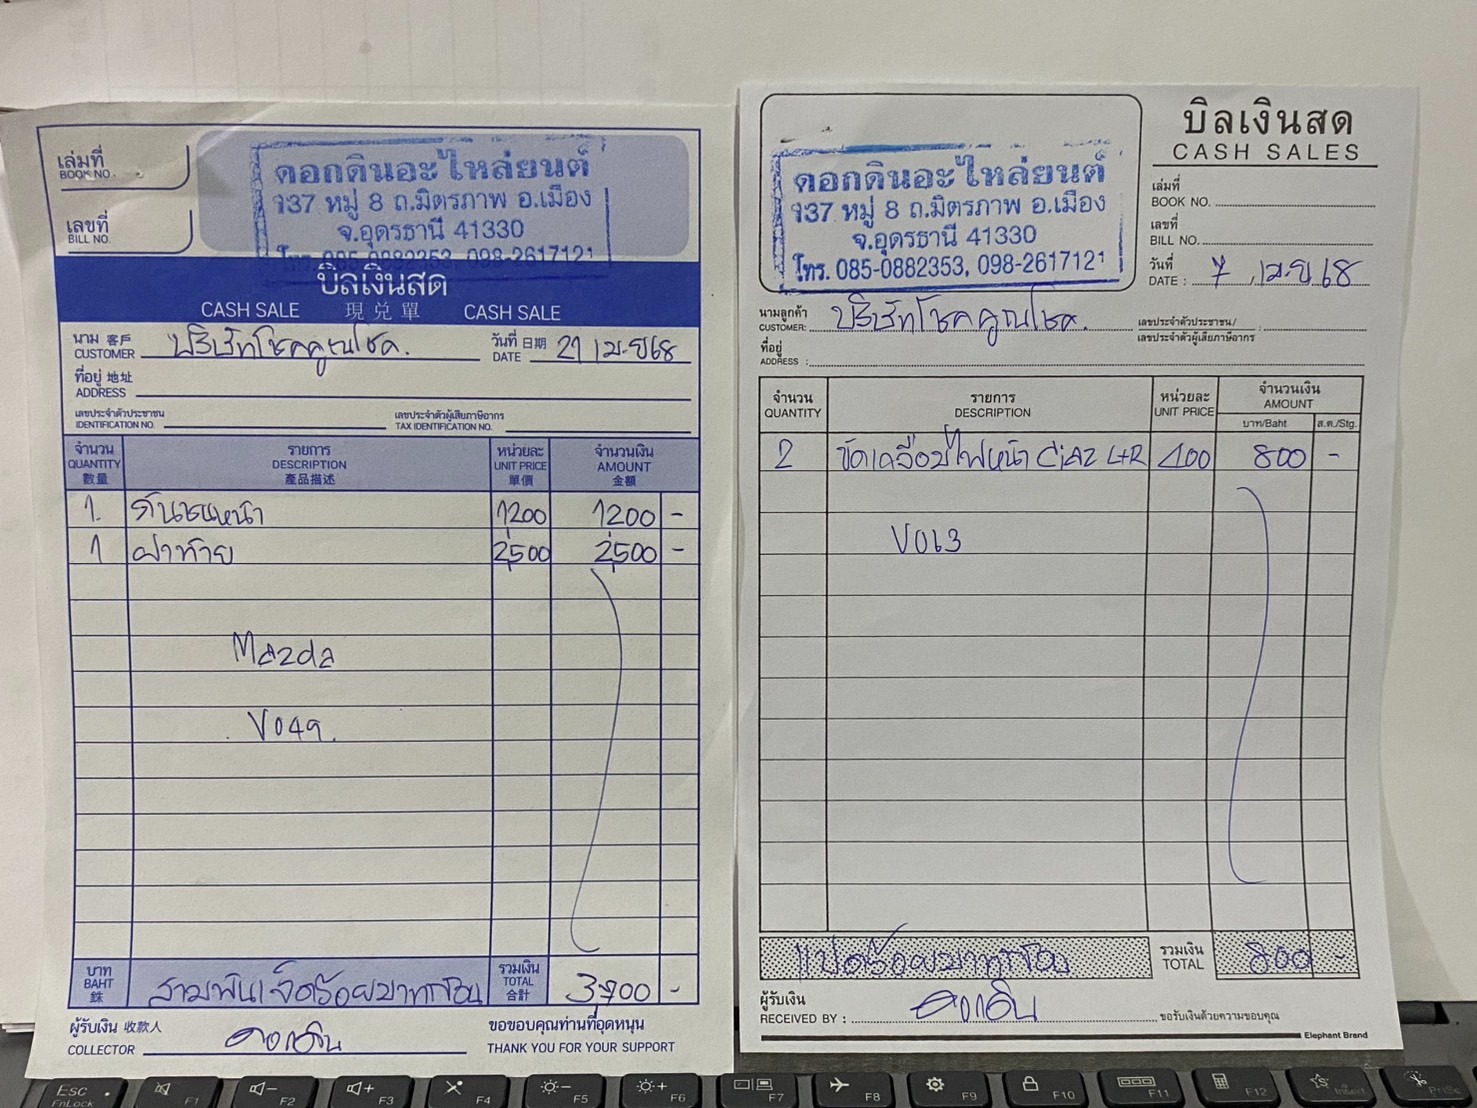 เล่มที่
BOOK NO.
เลขที่
BILL NO.
ดอกดินอะไหล่ยนต์
137 หมู่ 8 ถ.มิตรภาพ อ.เมือง
จ.อุดรธานี 41330
โทร. 085-0882353, 098-2617121
บิลเงินสด
CASH SALE 現兌單 CASH SALE
นาม 客戶
CUSTOMER บริษัทโชคคูณโชค.
วันที่ 日期
DATE 21 เม.ย 68
ที่อยู่ 地址
ADDRESS
เลขประจำตัวประชาชน
IDENTIFICATION NO.
เลขประจำตัวผู้เสียภาษีอากร
TAX IDENTIFICATION NO.
จำนวน รายการ หน่วยละ จำนวนเงิน
QUANTITY DESCRIPTION UNIT PRICE AMOUNT
數量 產品描述 單價 金額
1. กันชนหน้า 1200 1200 -
1 ฝาท้าย 2,500 2,500 -
Mazda
V049.
บาท
BAHT
銖
สามพันเจ็ดร้อยบาทถ้วน
รวมเงิน
TOTAL
合計
3,700 -
ผู้รับเงิน 收款人
COLLECTOR ดอกดิน
ขอขอบคุณท่านที่อุดหนุน
THANK YOU FOR YOUR SUPPORT
ดอกดินอะไหล่ยนต์
137 หมู่ 8 ถ.มิตรภาพ อ.เมือง
จ.อุดรธานี 41330
โทร. 085-0882353, 098-2617121
บิลเงินสด
CASH SALES
เล่มที่
BOOK NO.
เลขที่
BILL NO.
วันที่
DATE : 7 เม.ย 68
นามลูกค้า
CUSTOMER: บริษัทโชคคูณโชค.
เลขประจำตัวประชาชน/
เลขประจำตัวผู้เสียภาษีอากร :
ที่อยู่
ADDRESS :
จำนวน รายการ หน่วยละ จำนวนเงิน
QUANTITY DESCRIPTION UNIT PRICE AMOUNT
บาท/Baht ส.ต./Stg.
2 ขัดเคลือบไฟหน้า CiAZ L+R 400 800 -
V063
แปดร้อยบาทถ้วน
รวมเงิน
TOTAL
800 -
ผู้รับเงิน
RECEIVED BY : ดอกดิน
ขอรับเงินด้วยความขอบคุณ
Elephant Brand
Esc
FnLock
F1
F2
F3
F4
F5
F6
F7
F8
F9
F10
F11
F12
Insert
PrtSc